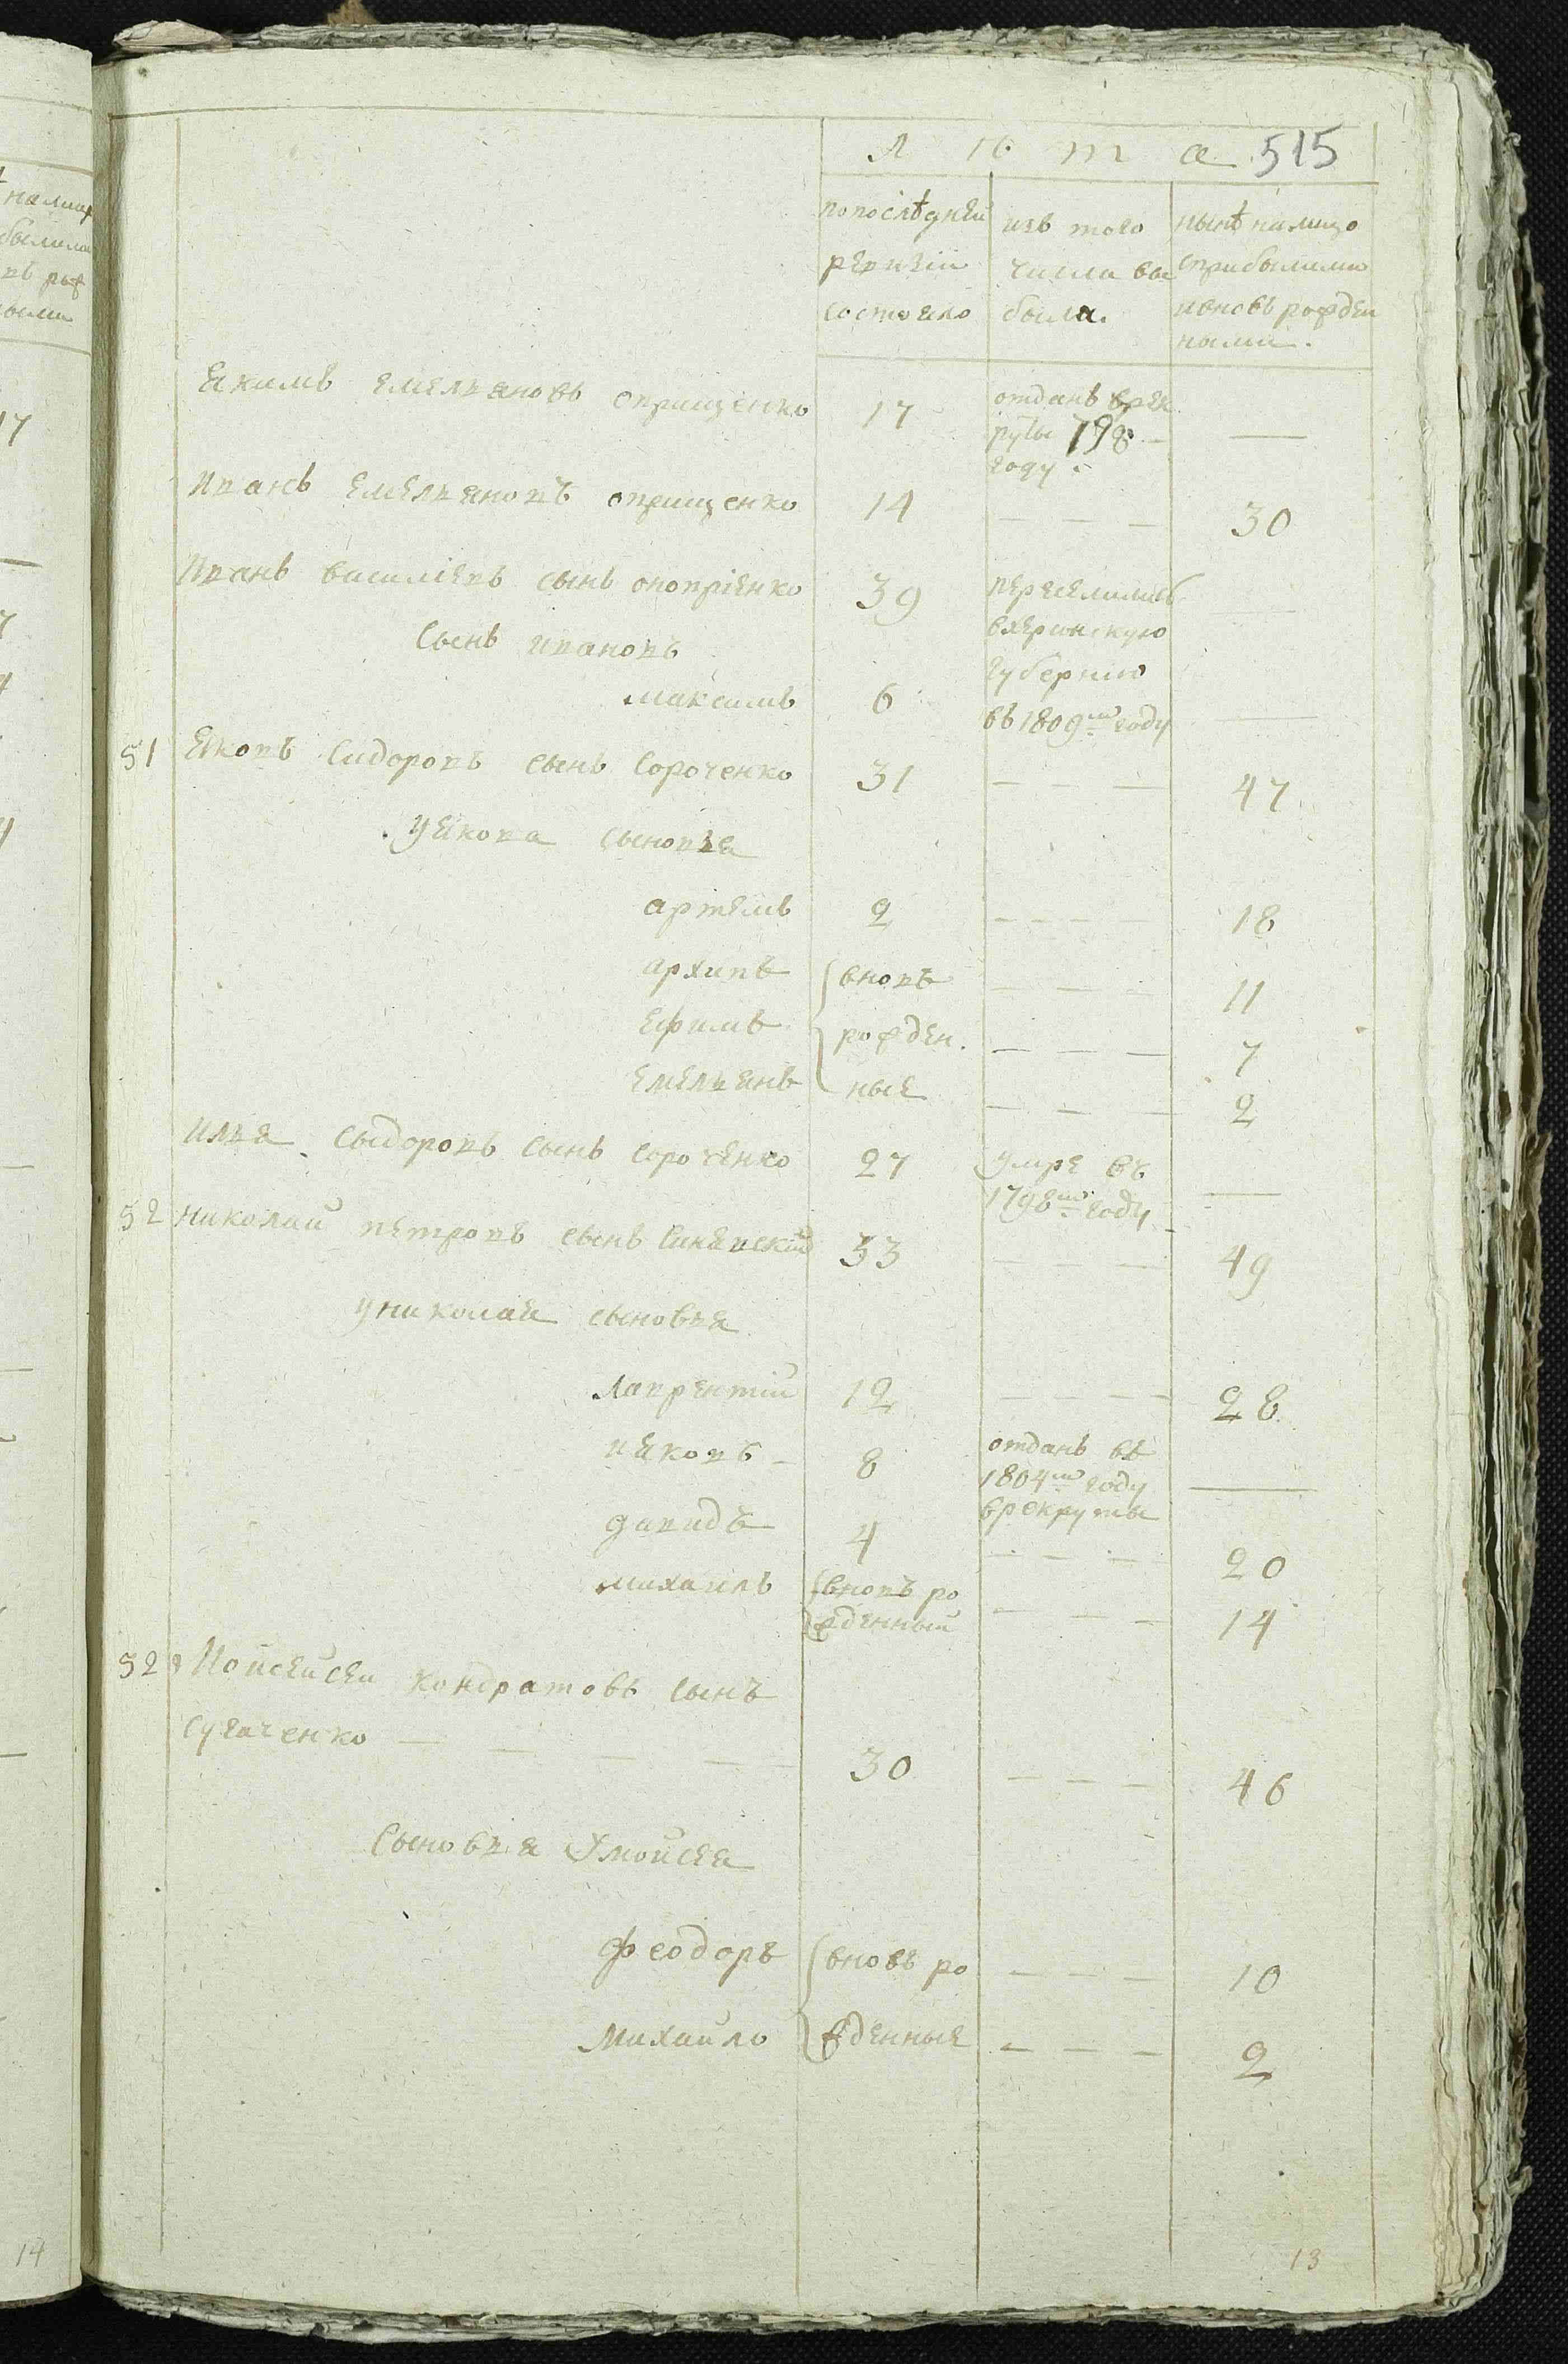 Лѣта 515
по послѣдней
ревизіи
состояло
изъ того
числа вы
была.
нынѣ налицо
сприбылыми
ивновь рожден
ными.
Якимъ Емельяновъ Оприщенко 17 отданъ врек
руты 798
году —
Иванъ Емельяновъ оприщенко 14 — — — 30
Иванъ василіевъ сынъ оноприенко 39 переселились
вхерсонскую
Сынъ ивановъ губернію
максимъ 6 въ 1809м году —
51 Яковъ Сидоровъ сынъ Сороченко 31 — — — 47
Уякова сыновья
артемъ 2 — — — — 18
архипъ вновь — — — 11
Ефимъ рожден. — — — 7
Емельянъ ные — — — 2
Илья Сыдоровъ Сынъ Сороченко 27 умре въ
1798м году —
52 николай петровъ сынъ Синявский 33 — — — 49
униколая сыновья
Лаврентій 12 — — — 28
иаковъ — 8 отданъ въ
1804м году —
врекруты
давидъ 4 — — — 20
михаилъ вновь ро
жденный — — — 14
52 Мойсей кондратовъ сынъ
Сугаченко — — — — — 30 — — — 46
Сыновья Умойсея
Феодоръ вновь ро — — — 10
Михайло жденные — — — 2
13
14